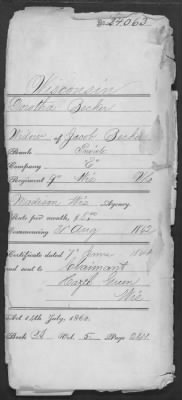 24,063
Wisconsin
Dorothea Becker
Widow of Jacob Becker
Rank Private
Company "E"
Regiment 9" Wis Vols
Madison Wis Agency.
Rate per month, $8
Commencing Aug 1862
Certificate dated 7" June 1864
and sent to Claimant
Hazel Green
Wis
Act 14th July, 1862.
Book Vol. 5 Page